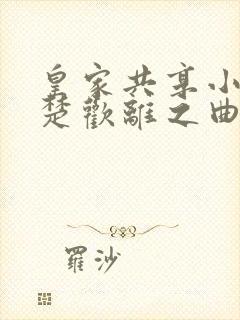 皇家共享小
楚歡離之曲
羅沙